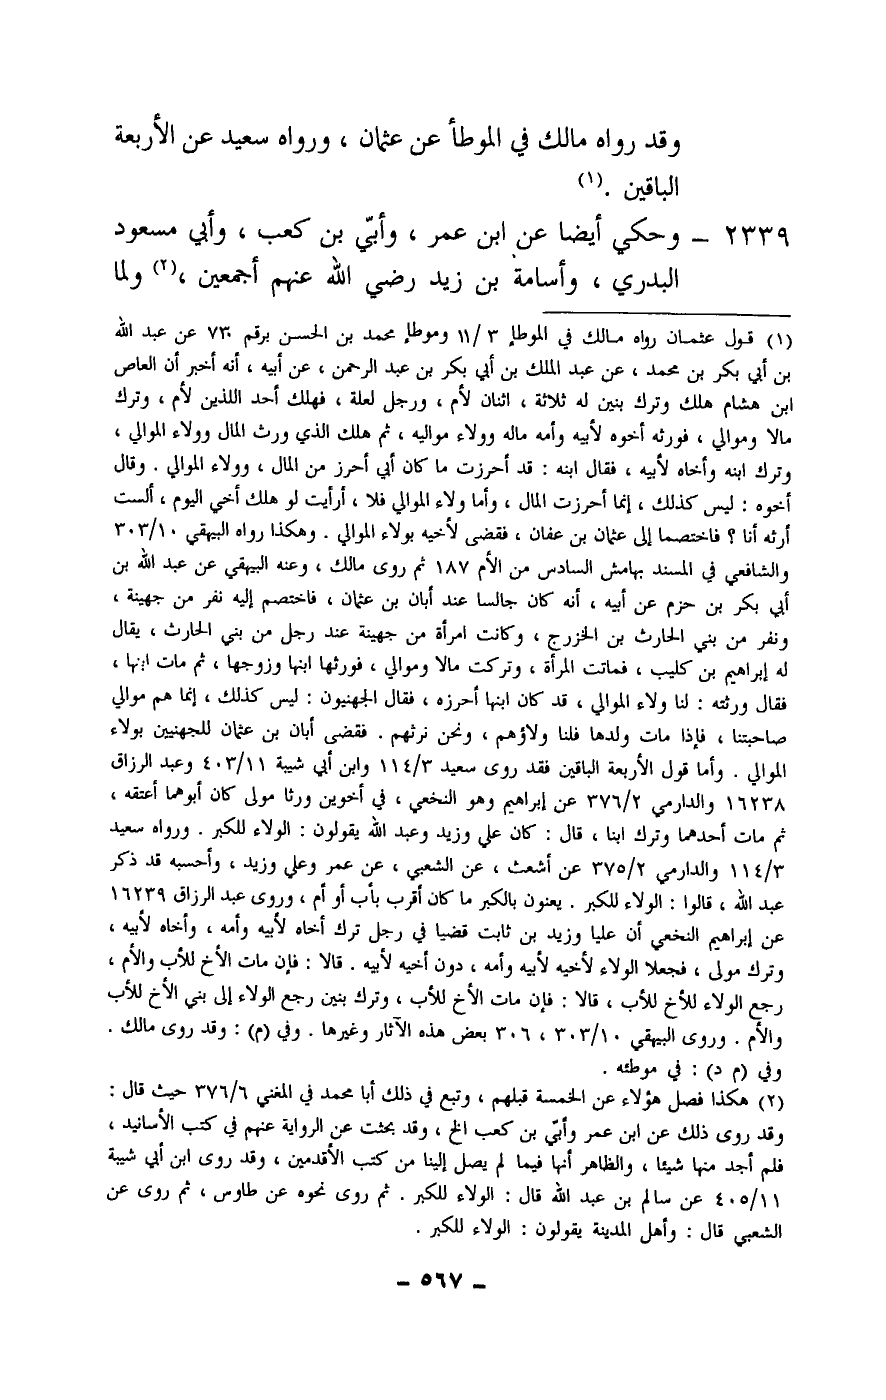 وقد رواه مالك في الموطأ عن عثمان ، ورواه سعيد عن الأربعة
الباقين .(١)
٢٣٣٩ – وحكي أيضا عن ابن عمر ، وأبيّ بن كعب ، وأبي مسعود
البدري ، وأسامة بن زيد رضي الله عنهم أجمعين ،(٢) ولما
(١) قول عثمان رواه مالك في الموطإ ١١/٣ وموطإ محمد بن الحسن برقم ٧٣٠ عن عبد الله
بن أبي بكر بن محمد ، عن عبد الملك بن أبي بكر بن عبد الرحمن ، عن أبيه ، أنه أخبر أن العاص
ابن هشام هلك وترك بنين له ثلاثة ، اثنان لأم ، ورجل لعلة ، فهلك أحد اللذين لأم ، وترك
مالا وموالي ، فورثه أخوه لأبيه وأمه ماله وولاء مواليه ، ثم هلك الذي ورث المال وولاء الموالي ،
وترك ابنه وأخاه لأبيه ، فقال ابنه : قد أحرزت ما كان أبي أحرز من المال ، وولاء الموالي . وقال
أخوه : ليس كذلك ، إنما أحرزت المال ، وأما ولاء الموالي فلا ، أرأيت لو هلك أخي اليوم ، ألست
أرثه أنا ؟ فاختصما إلى عثمان بن عفان ، فقضى لأخيه بولاء الموالي . وهكذا رواه البيهقي ٣٠٣/١٠
والشافعي في المسند بهامش السادس من الأم ١٨٧ ثم روى مالك ، وعنه البيهقي عن عبد الله بن
أبي بكر بن حزم عن أبيه ، أنه كان جالسا عند أبان بن عثمان ، فاختصم إليه نفر من جهينة ،
ونفر من بني الحارث بن الخزرج ، وكانت امرأة من جهينة عند رجل من بني الحارث ، يقال
له إبراهيم بن كليب ، فماتت المرأة ، وتركت مالا وموالي ، فورثها ابنها وزوجها ، ثم مات ابنها ،
فقال ورثته : لنا ولاء الموالي ، قد كان ابنها أحرزه ، فقال الجهنيون : ليس كذلك ، إنما هم موالي
صاحبتنا ، فإذا مات ولدها فلنا ولاؤهم ، ونحن نرثهم . فقضى أبان بن عثمان للجهنيين بولاء
الموالي . وأما قول الأربعة الباقين فقد روى سعيد ١١٤/٣ وابن أبي شيبة ٤٠٣/١١ وعبد الرزاق
١٦٢٣٨ والدارمي ٣٧٦/٢ عن إبراهيم وهو النخعي ، في أخوين ورثا مولى كان أبوهما أعتقه ،
ثم مات أحدهما وترك ابنا ، قال : كان علي وزيد وعبد الله يقولون : الولاء للكبر . ورواه سعيد
١١٤/٣ والدارمي ٣٧٥/٢ عن أشعث ، عن الشعبي ، عن عمر وعلي وزيد ، وأحسبه قد ذكر
عبد الله ، قالوا : الولاء للكبر . يعنون بالكبر ما كان أقرب بأب أو أم ، وروى عبد الرزاق ١٦٢٣٩
عن إبراهيم النخعي أن عليا وزيد بن ثابت قضيا في رجل ترك أخاه لأبيه وأمه ، وأخاه لأبيه ،
وترك مولى ، فجعلا الولاء لأخيه لأبيه وأمه ، دون أخيه لأبيه . قالا : فإن مات الأخ للأب والأم ،
رجع الولاء للأخ للأب ، قالا : فإن مات الأخ للأب ، وترك بنين رجع الولاء إلى بني الأخ للأب
والأم . وروى البيهقي ٣٠٣/١٠ ، ٣٠٦ بعض هذه الآثار وغيرها . وفي (م) : وقد روى مالك .
وفي (م د) : في موطئه .
(٢) هكذا فصل هؤلاء عن الخمسة قبلهم ، وتبع في ذلك أبا محمد في المغني ٣٧٦/٦ حيث قال :
وقد روى ذلك عن ابن عمر وأبيّ بن كعب الخ ، وقد بحثت عن الرواية عنهم في كتب الأسانيد ،
فلم أجد منها شيئا ، والظاهر أنها فيما لم يصل إلينا من كتب الأقدمين ، وقد روى ابن أبي شيبة
٤٠٥/١١ عن سالم بن عبد الله قال : الولاء للكبر . ثم روى نحوه عن طاوس ، ثم روى عن
الشعبي قال : وأهل المدينة يقولون : الولاء للكبر .
– ٥٦٧ –